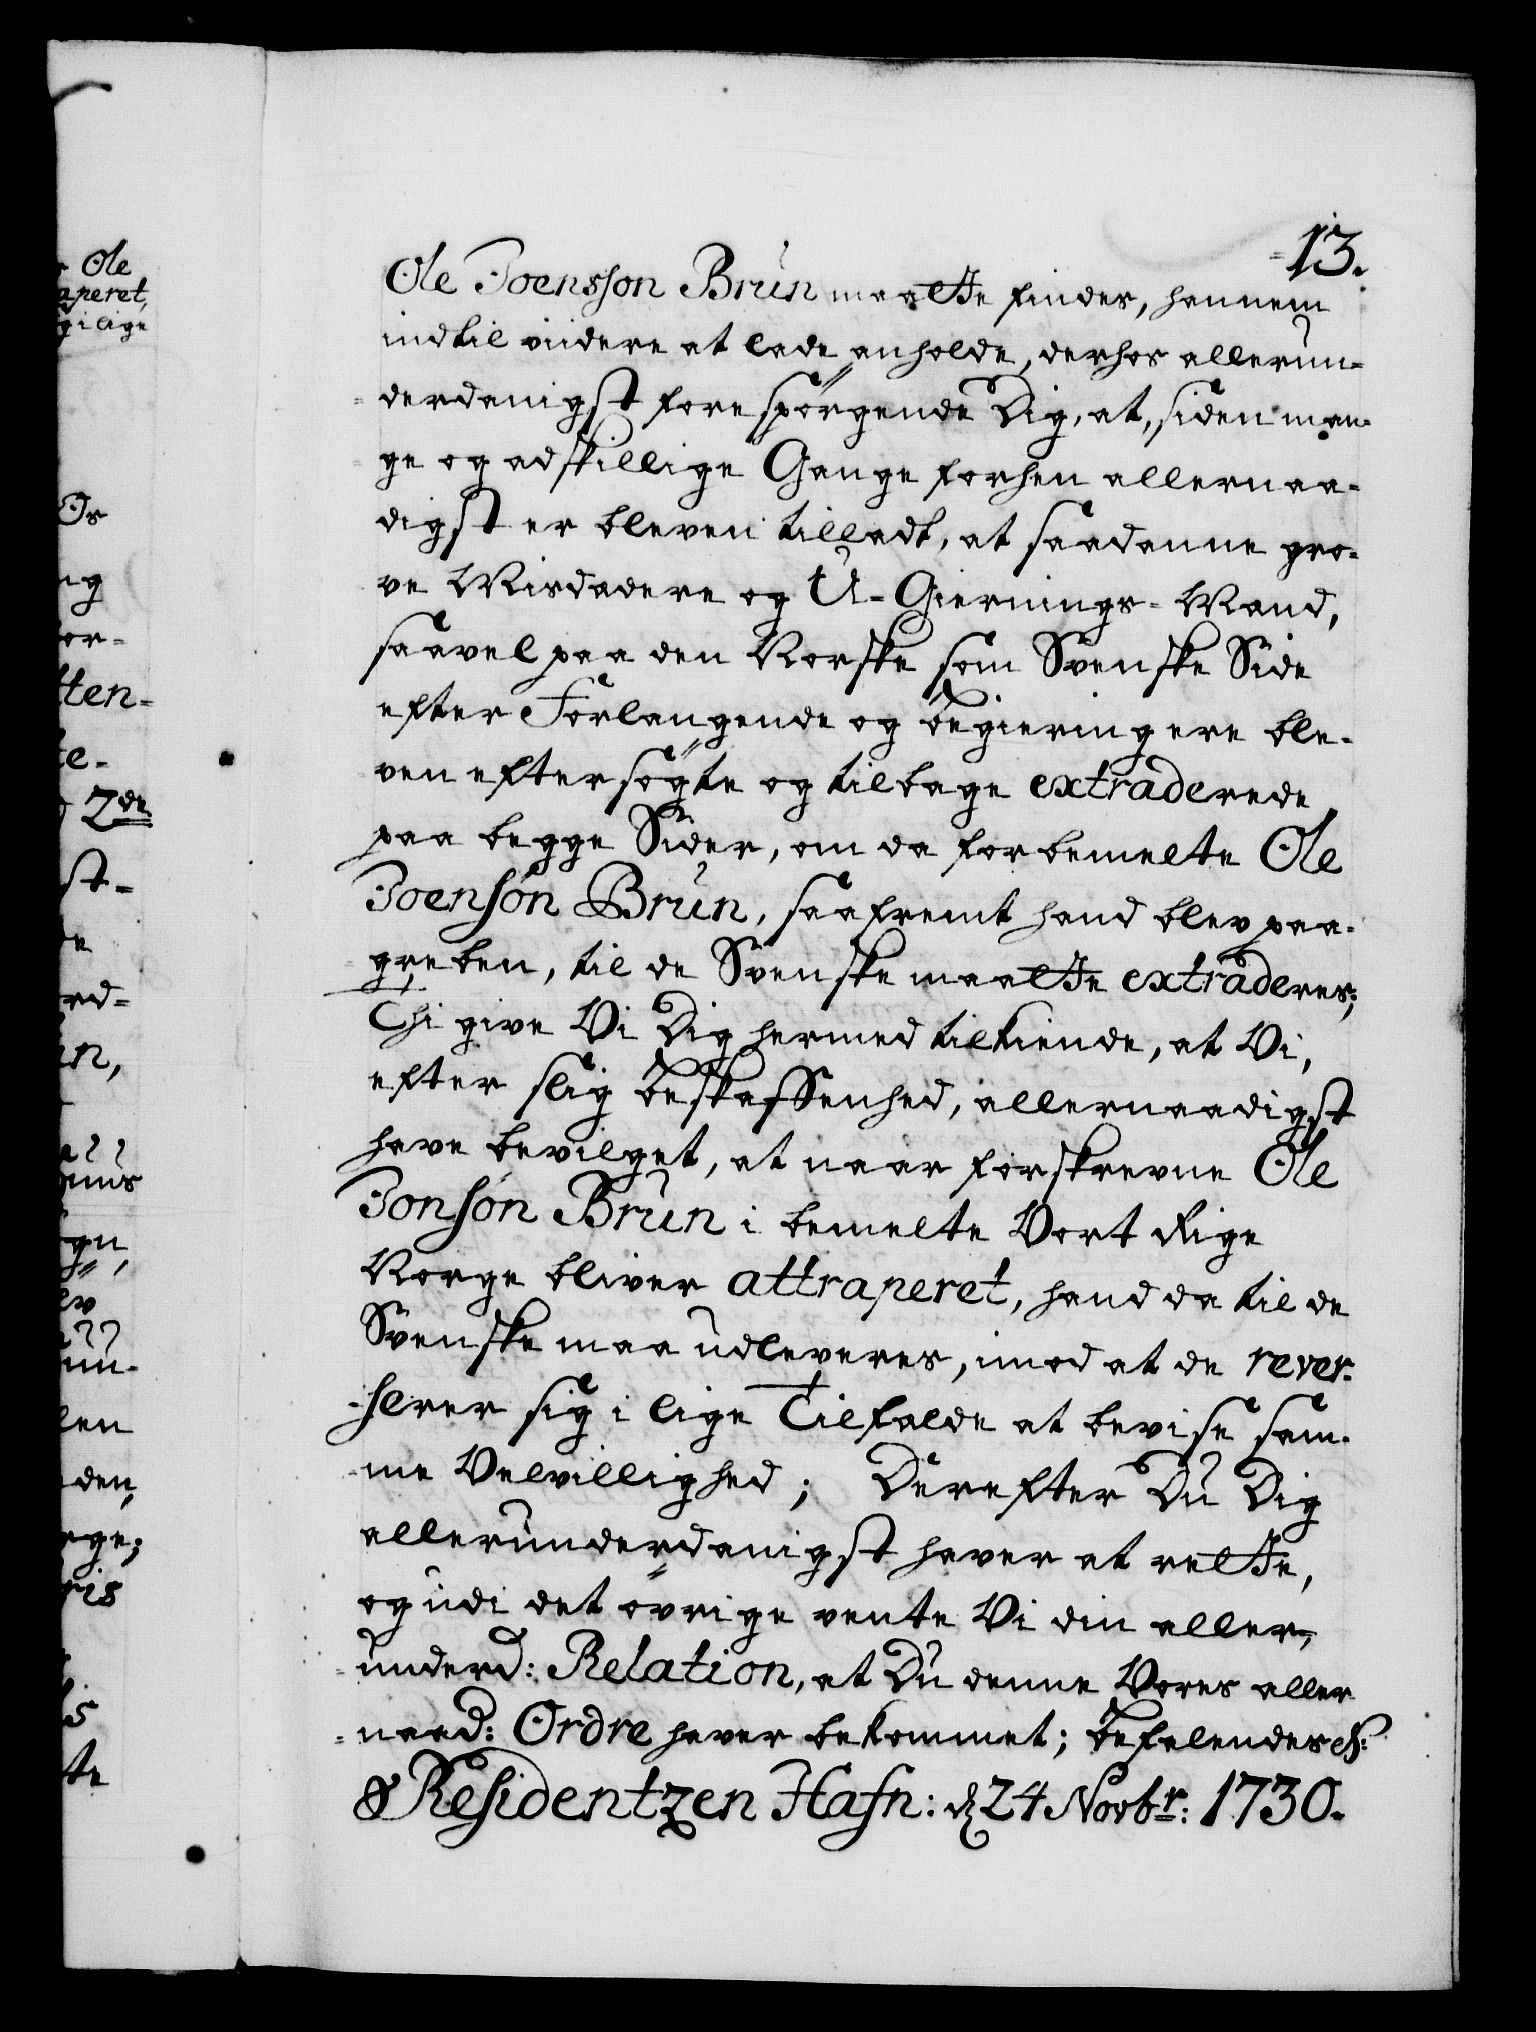 13.
Ole Joensson Brun maatte findes, hannem
indtil viidere at lade anholde, derhos allerun-
derdanigst forespörgende Dig, at, siden man-
ge og adskillige Gange forhen allernaa-
digst er bleven tilladt, at saadanne gro-
ve Misdadere og U-Giernings-Mænd,
saavel paa den Norske som Svenske Side
efter Forlangende og begiering ere ble-
ven eftersögte og tilbage extraderede
paa begge Sider, om da forbemelte Ole
Joensón Brun, saafremt hand blev paa-
greben, til de Svenske maatte extraderes;
Thi give Vi Dig hermed tilkiende, at Vi,
efter slig beskaffenhed, allernaadigst
have bevilget, at naar forskrevne Ole
Jonsón Brun i bemelte Vort Rige
Norge bliver attraperet, hand da til de
Svenske maa udleveres, imod at de rever-
serer sig i lige Tilfalde at bevise sam-
me Velvillighed; Derefter Du Dig
allerunderdanigst haver at rette,
og udi det övrige vente Vi din aller-
underd: Relation, at Du denne Vores aller
naad: Ordre haver bekommet; befalendes etc:
Residentzen Hafn: d 24 Novbr: 1730.
Ole
aperet,
lige
Os
or-
tten-
te-
7de
st-
rd-
un,
den,
ris
te